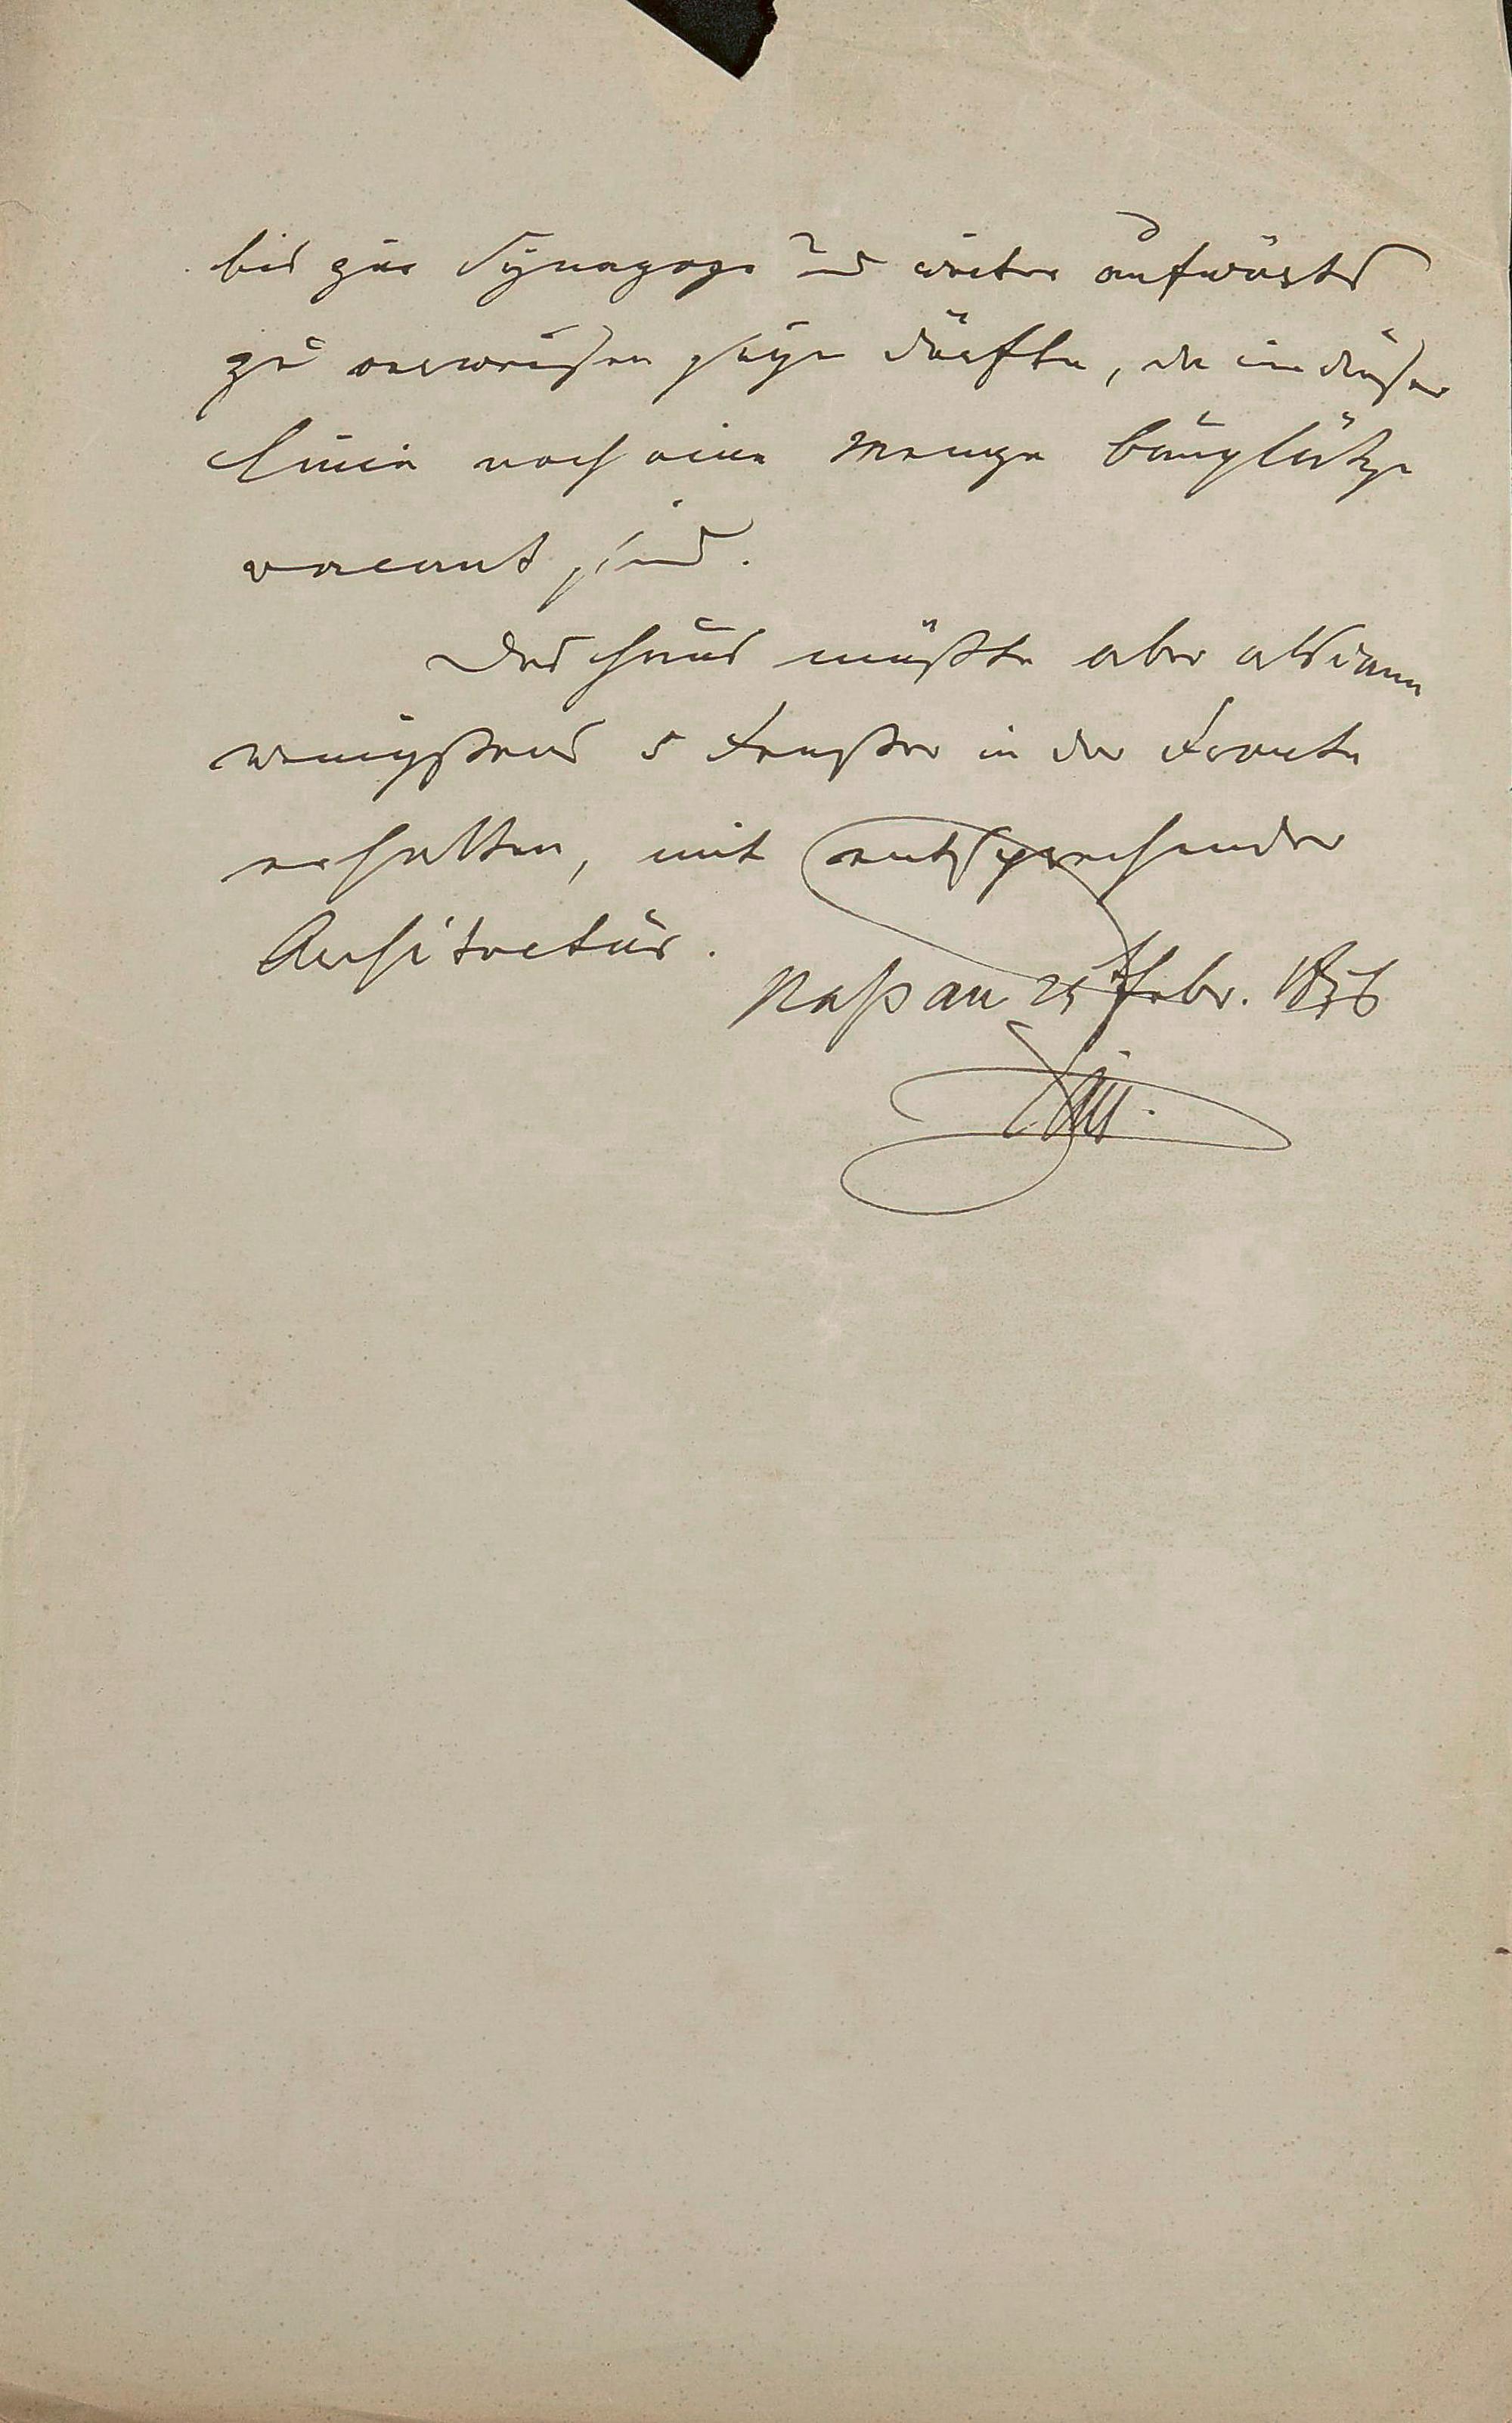 bis zur Synagoge und weiter aufwärts
zu verweisen seyn dürfte, da in dieser
Linie noch eine Menge Bauplätze
vacant sind.
Das Haus müßte aber alsdann
wenigstens 5 Fenster in der Fronte
erhalten, mit entsprechender
Architectur.
Naßau 25 Febr.